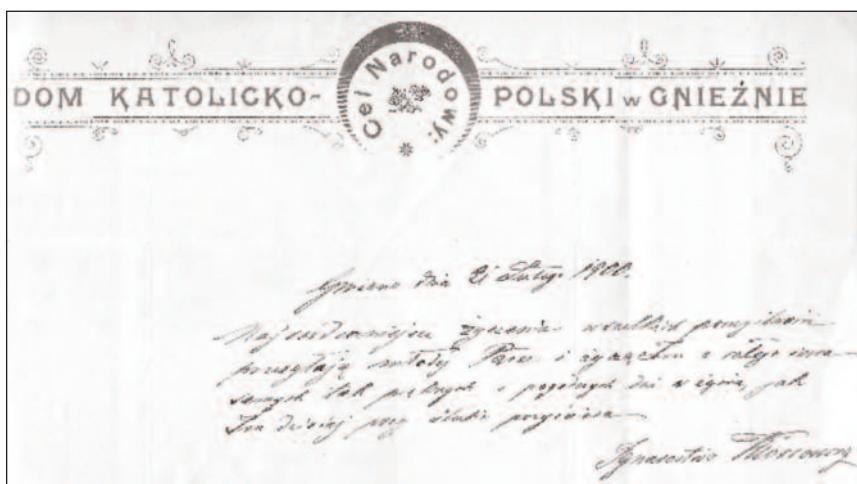 DOM KATOLICKO-
Cel Narodowy:
POLSKI w GNIEŹNIE
Gniezno dnia 21 Lutego 1900.
Najserdeczniejsze życzenia wszelkich
przesyłają młodej Parze i z całego serca
samych tak pięknych i pogodnych dni w życiu, jak
dzisiaj przy ślubie
Ignacostwo